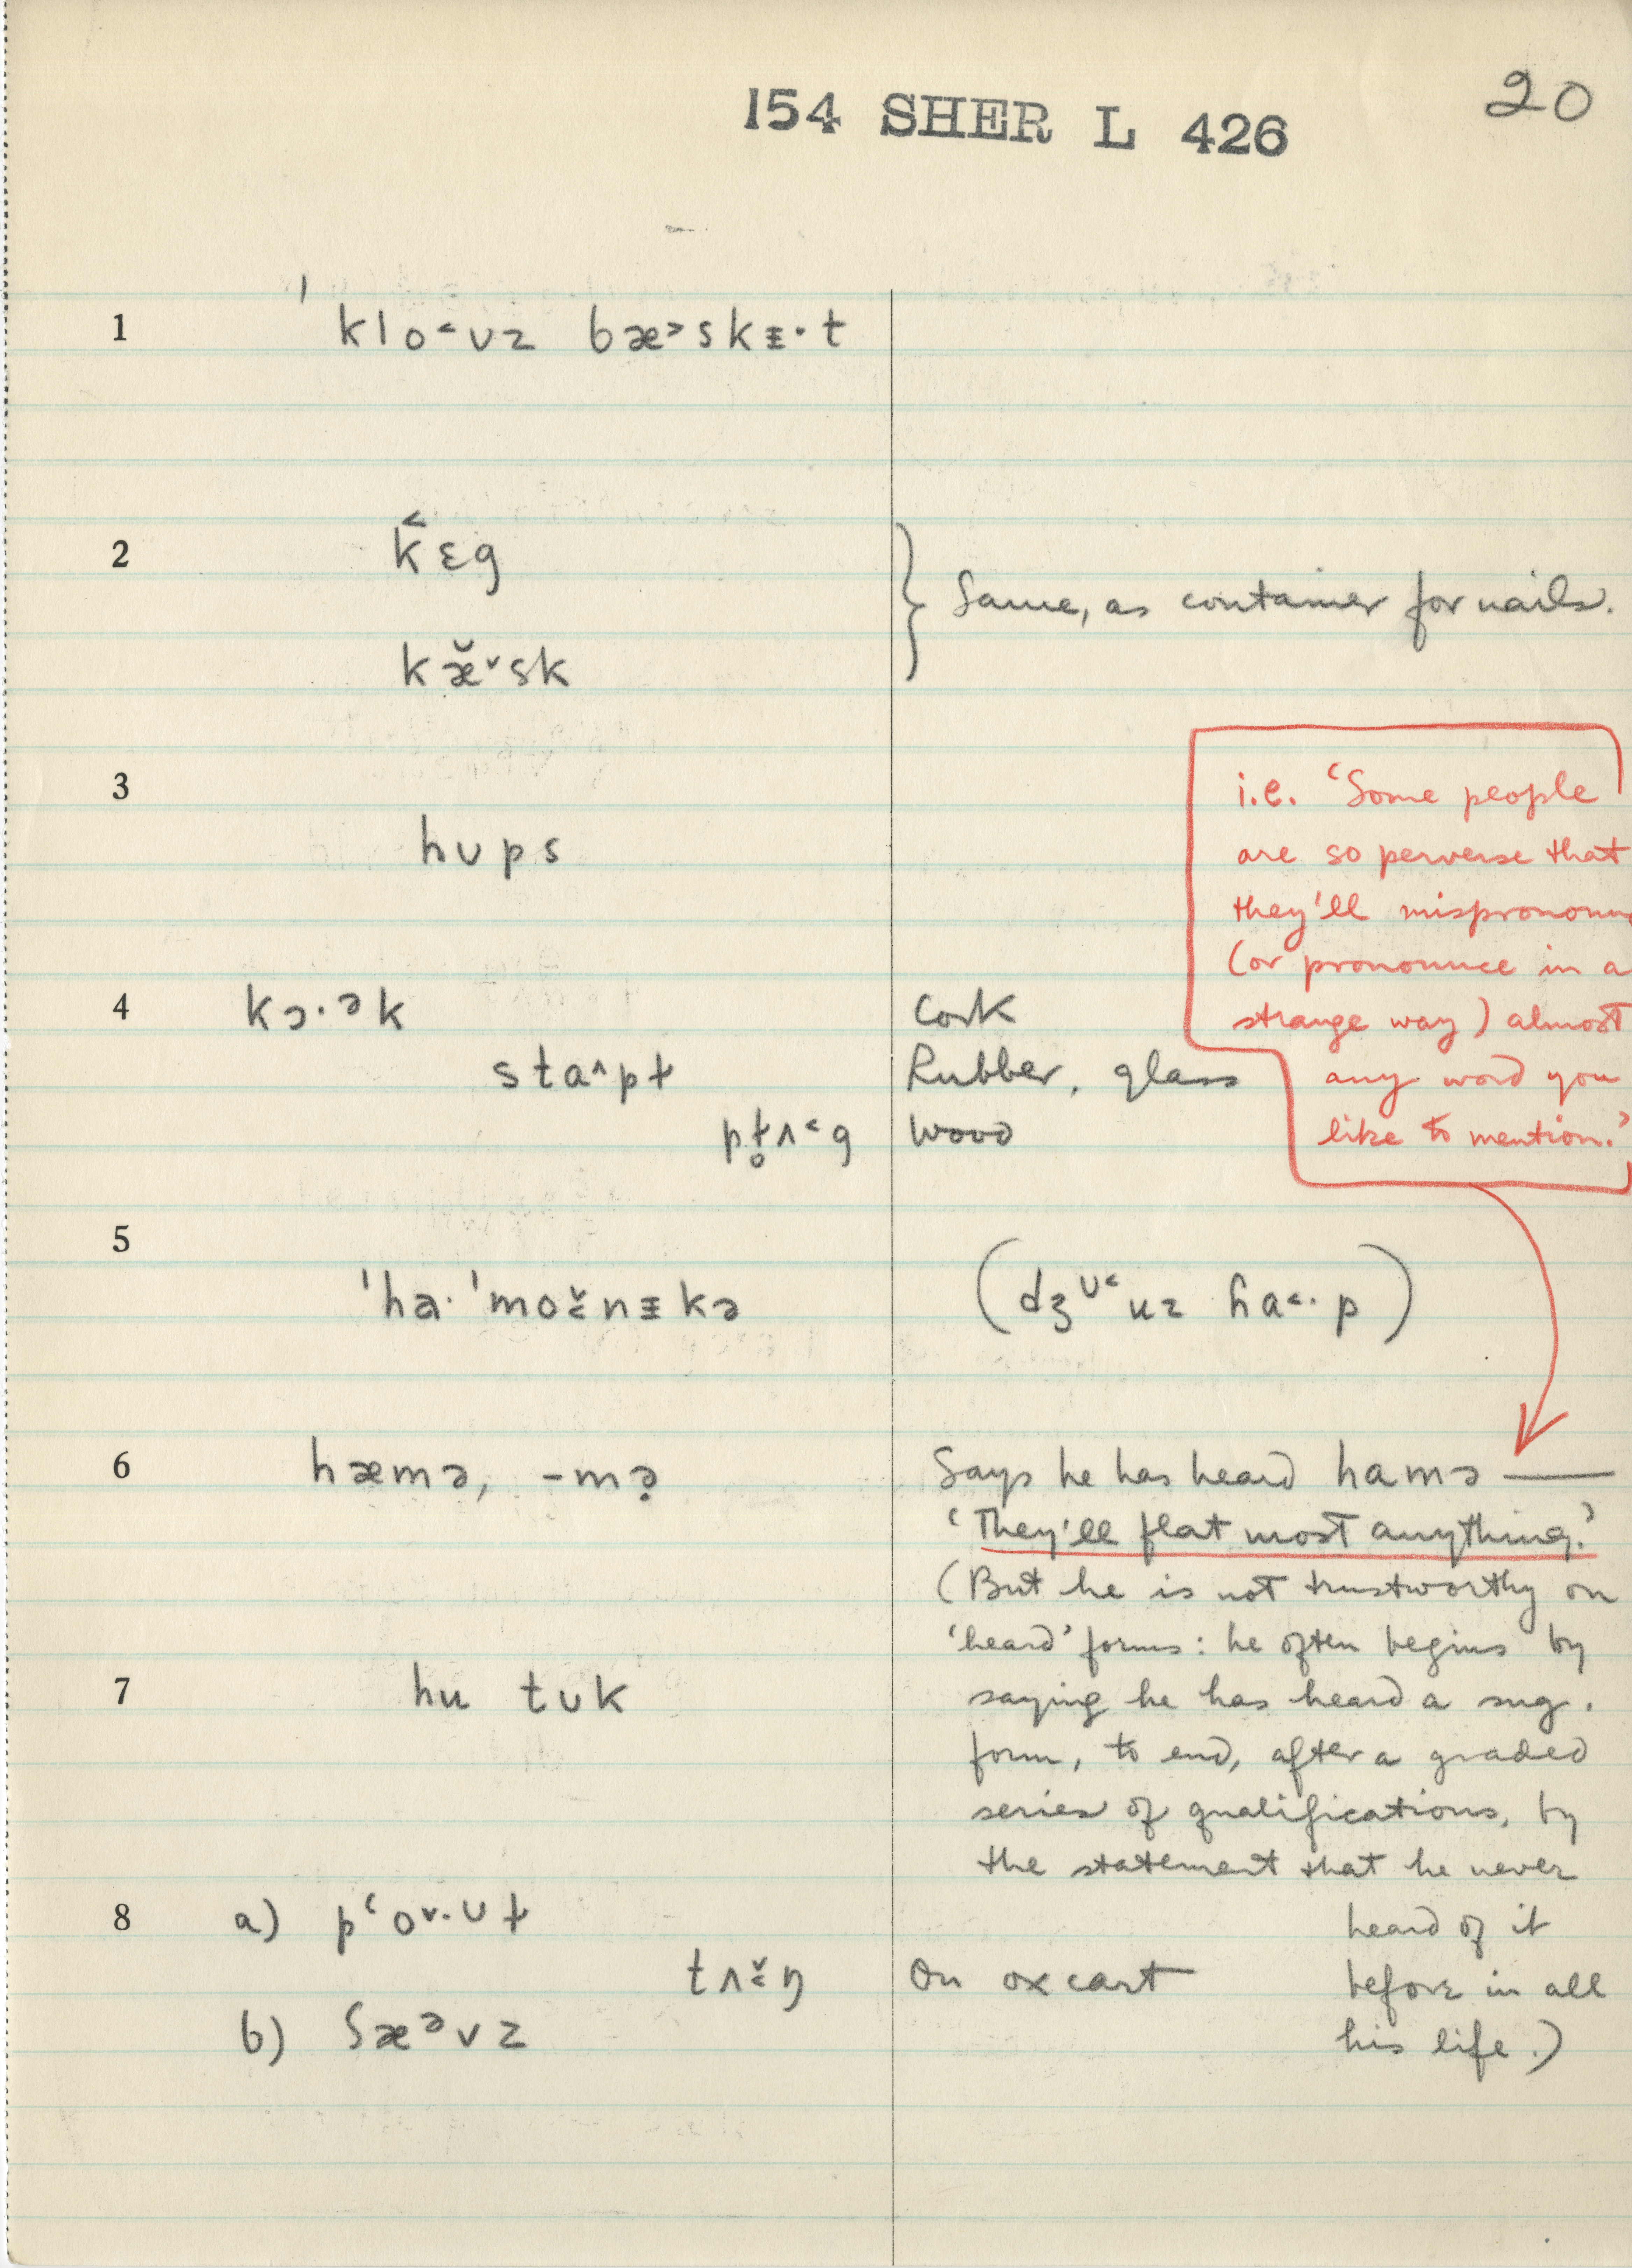 154 SHER L 426
20
1 ˈklo˂ʊz bæ˃skɪ·t
2 k̂ɛg
kæ̆ˇsk
Same, as container for nails.
3
hʊps
i.e. ‘Some people
are so perverse that
they'll mispronoun
(or pronounce in a
strange way) almost
any word you
like to mention.’
4 kɔ·ək Cork
staˆpɫ Rubber, glass
pɫ̥ʌ˂g Wood
5
ˈha·ˈmoˇ˂nɪkə (dʒᶸ˂uz ɦa˂·p)
6 hæmə, -mə̣ Says he has heard hamə —
‘They'll flat most anything.’
(But he is not trustworthy on
‘heard’ forms: he often begins by
7 hu tʊk saying he has heard a sug.
form, to end, after a graded
series of qualifications, by
the statement that he never
8 a) pʻoˇ·ʊɫ heard of it
tʌˇ˂ŋ On ox cart before in all
b) šæəvz his life.)